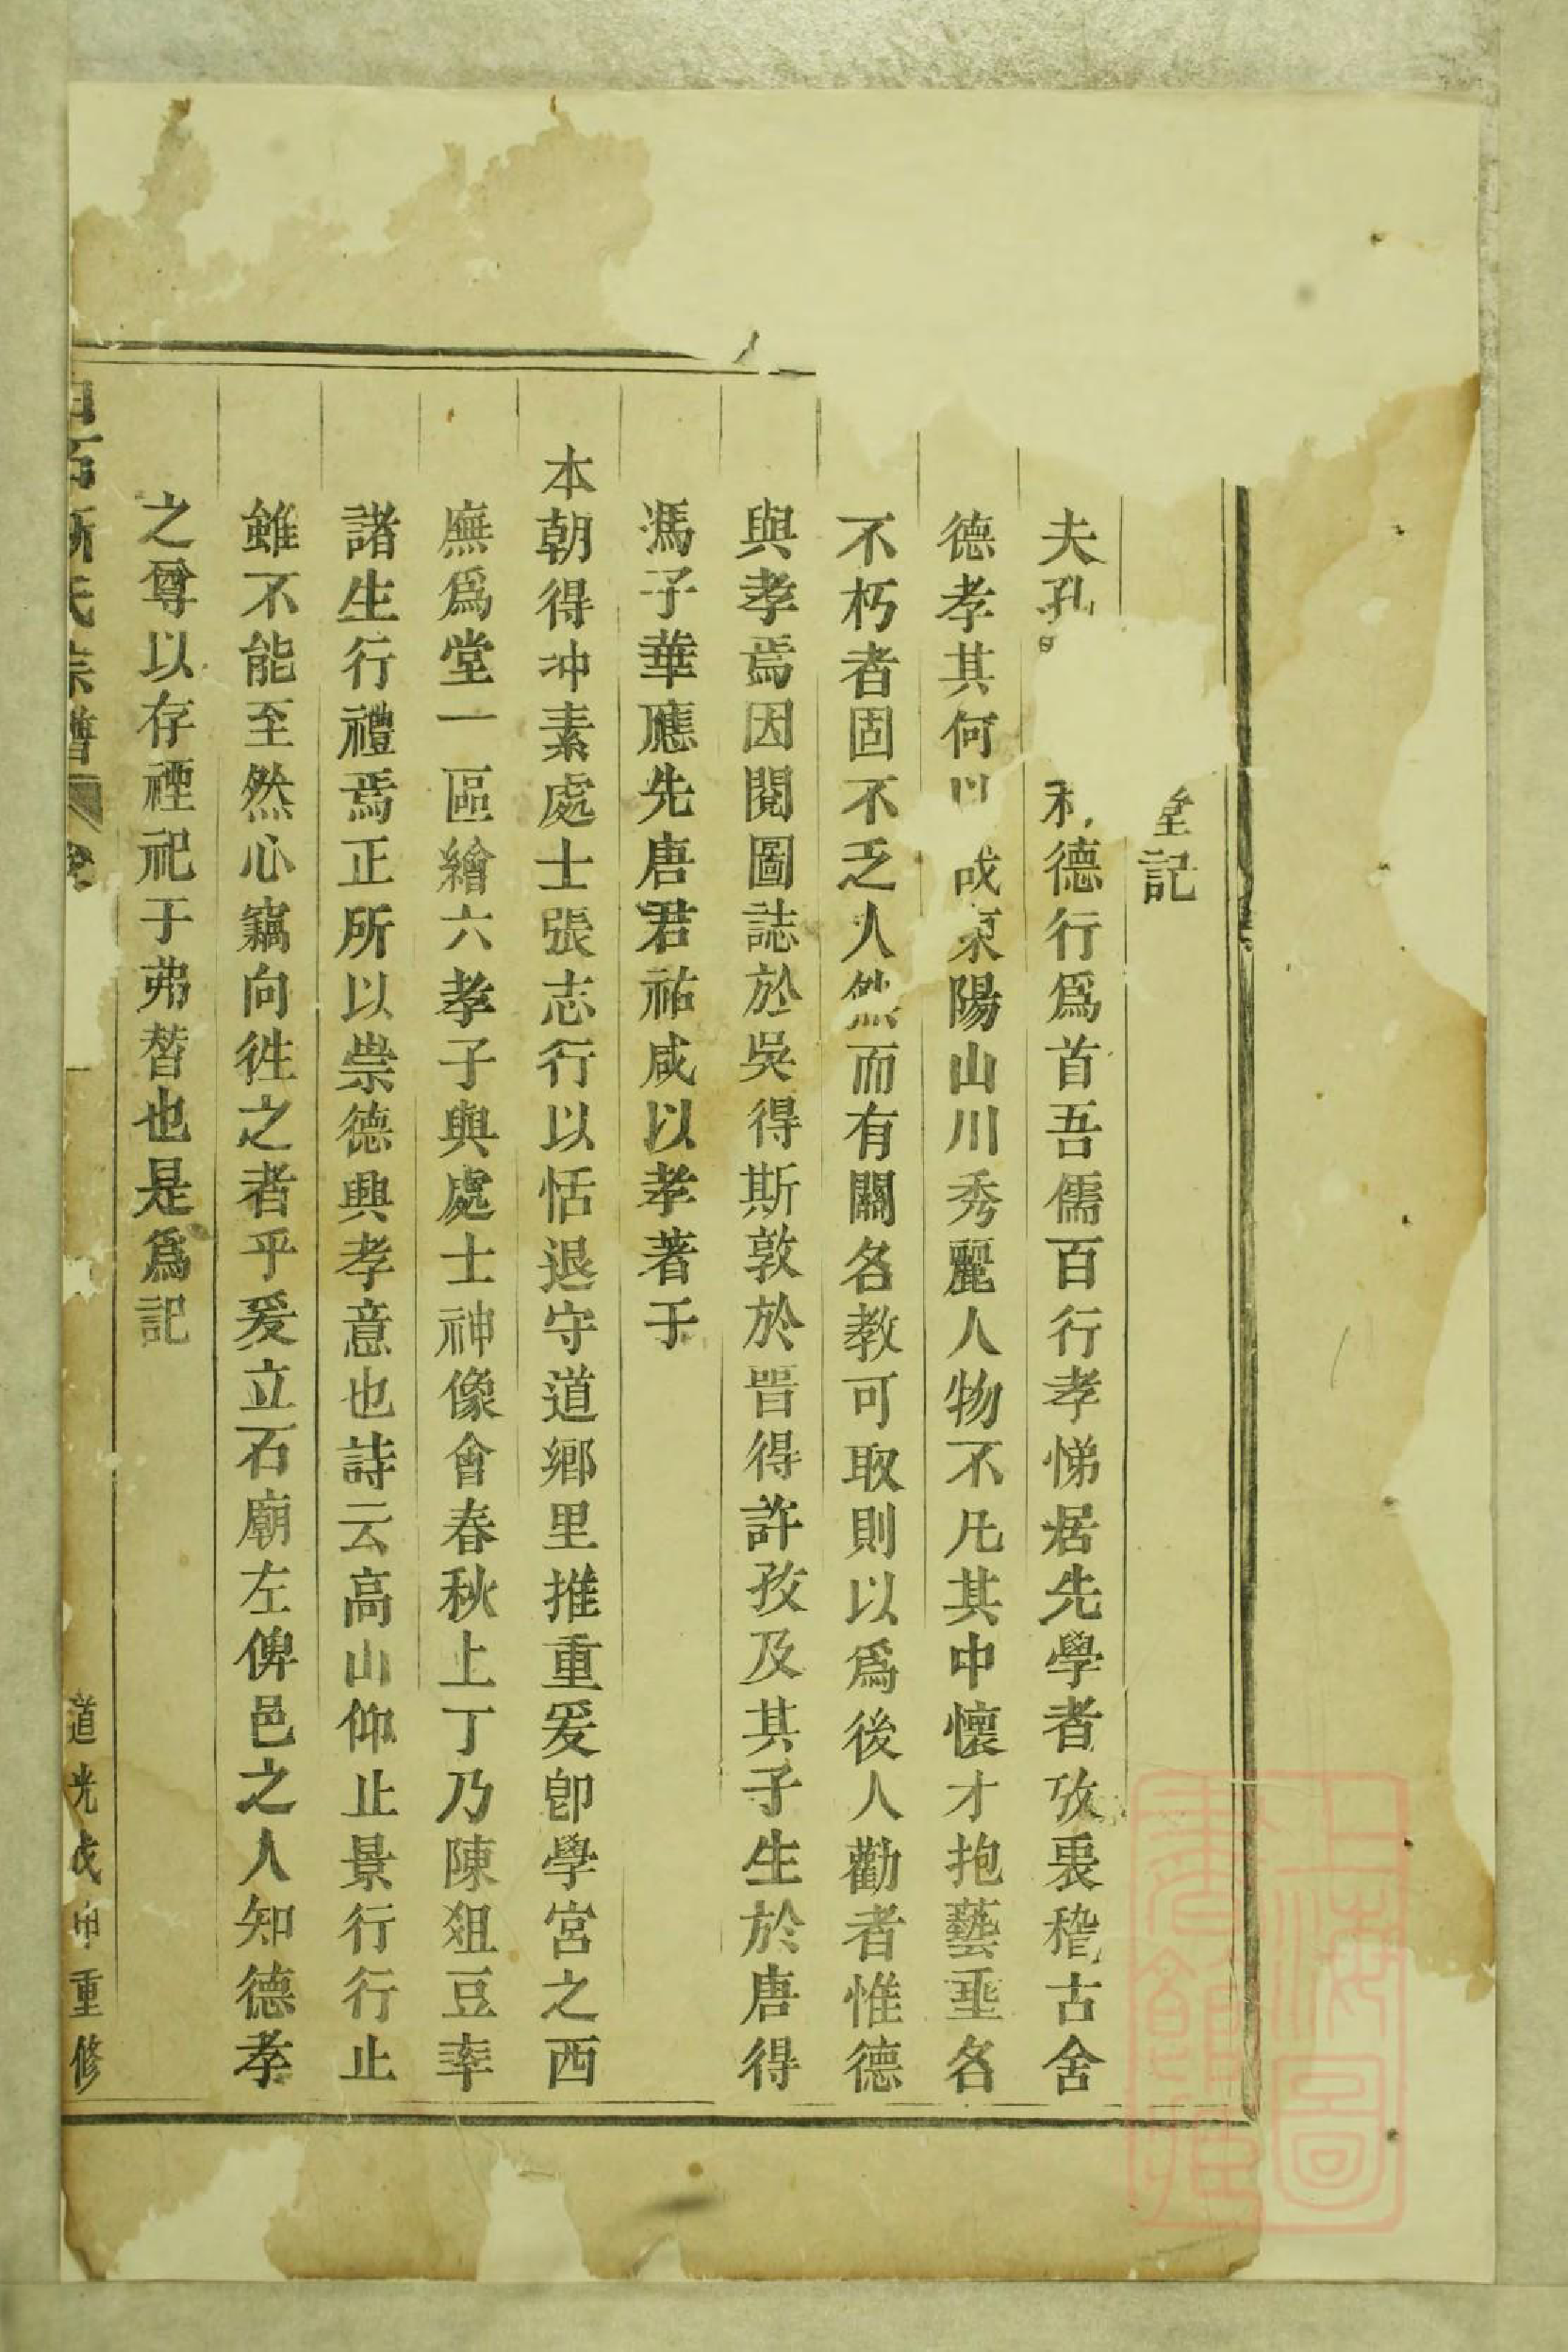 堂記
夫孔德行爲首吾儒百行孝悌居先學者攷衷稽古舍
德孝其何以成東陽山川秀麗人物不凡其中懷才抱藝垂名
不朽者固不乏人然而有關名教可取則以爲後人勸者惟德
與孝焉因閱圖誌於吳得斯敦於晋得許孜及其子生於唐得
馮子華應先唐君祐咸以孝著于
本朝得冲素處士張志行以恬退守道鄉里推重爰卽學宮之西
廡爲堂一區繪六孝子與處士神像會春秋上丁乃陳俎豆率
諸生行禮焉正所以崇德興孝意也詩云高山仰止景行行止
雖不能至然心竊向徃之者乎爰立石廟左俾邑之人知德孝
之尊以存禋祀于弗替也是爲記
氏宗譜
道光戊申重修
上海圖書館藏